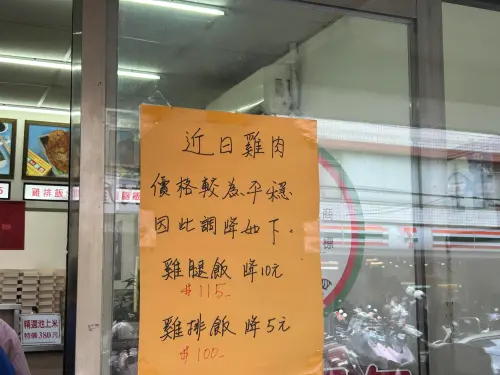 近日雞肉
價格較為平穩
因此調降如下。
雞腿飯 降10元
$115-
雞排飯 降5元
$100-
雞排飯
精選池上米
特價380元
商
標